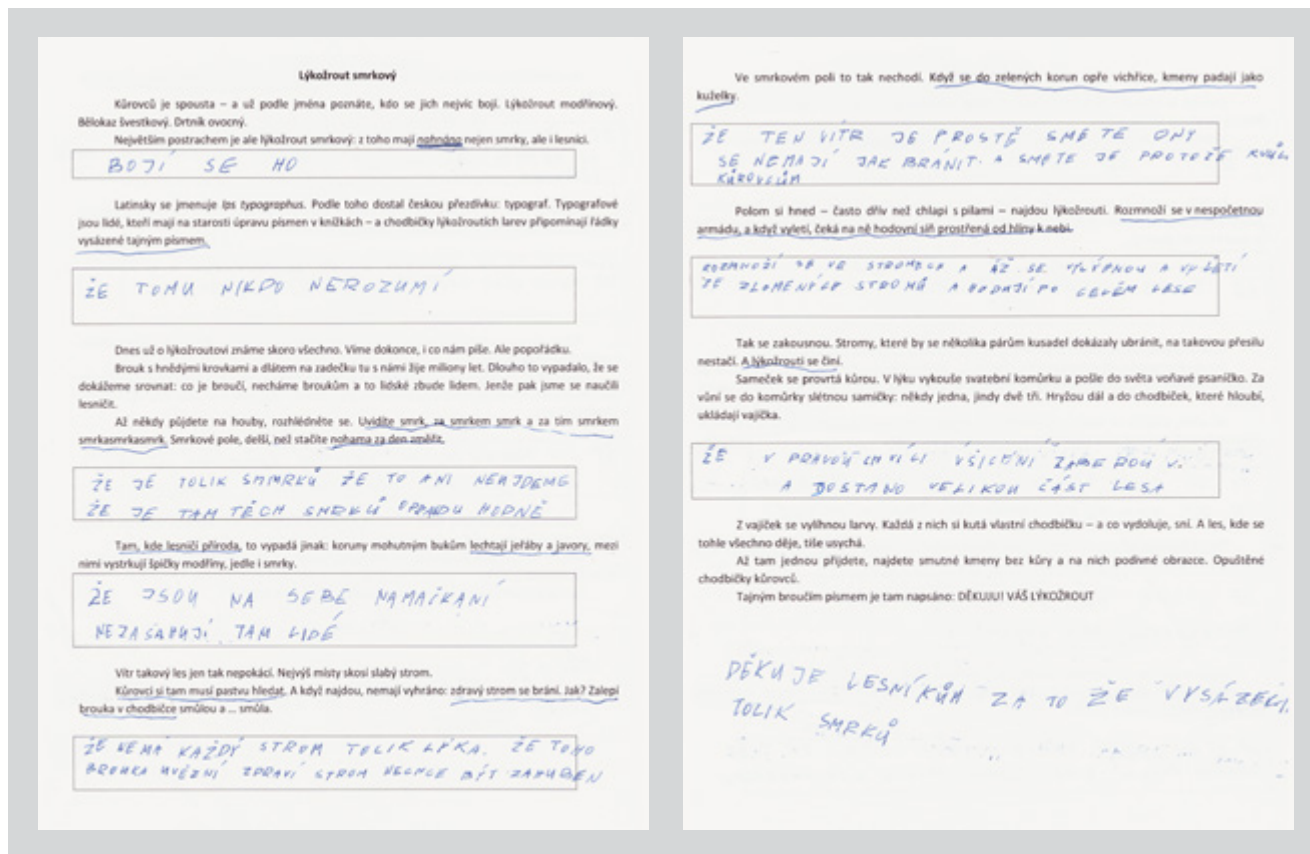 Lýkožrout smrkový
Kůrovců je spousta – a už podle jména poznáte, kdo se jich nejvíc bojí. Lýkožrout modřínový.
Bělokaz švestkový. Drtník ovocný.
Největším postrachem je ale lýkožrout smrkový: z toho mají nahnáno nejen smrky, ale i lesníci.
BOJÍ SE HO
Latinsky se jmenuje Ips typographus. Podle toho dostal českou přezdívku: typograf. Typografové
jsou lidé, kteří mají na starosti úpravu písmen v knížkách – a chodbičky lýkožroutích larev připomínají řádky
vysázené tajným písmem.
ŽE TOMU NIKDO NEROZUMÍ
Dnes už o lýkožroutovi známe skoro všechno. Víme dokonce, i co nám píše. Ale popořádku.
Brouk s hnědými krovkami a dlátem na zadečku tu s námi žije miliony let. Dlouho to vypadalo, že se
dokážeme srovnat: co je broučí, necháme broukům a to lidské zbude lidem. Jenže pak jsme se naučili
lesničit.
Až někdy půjdete na houby, rozhlédněte se. Uvidíte smrk, za smrkem smrk a za tím smrkem
smrkasmrkasmrk. Smrkové pole, delší, než stačíte nohama za den změřit.
ŽE JE TOLIK SMMRKŮ ŽE TO ANI NEUJDEME
ŽE JE TAM TĚCH SMRKŮ OPRAVDU HODNĚ
Tam, kde lesničí příroda, to vypadá jinak: koruny mohutným bukům lechtají jeřáby a javory, mezi
nimi vystrkují špičky modříny, jedle i smrky.
ŽE JSOU NA SEBE NAMAČKANÍ
NEZASAHUJÍ TAM LIDÉ
Vítr takový les jen tak nepokácí. Nejvýš místy skosí slabý strom.
Kůrovci si tam musí pastvu hledat. A když najdou, nemají vyhráno: zdravý strom se brání. Jak? Zalepí
brouka v chodbičce smůlou a ... smůla.
ŽE NEMÁ KAŽDÝ STROM TOLIK LÝKA. ŽE TOHO
BROUKA UVĚZNÍ ZDRAVÍ STROM NECHCE BÝT ZAHUBEN
Ve smrkovém poli to tak nechodí. Když se do zelených korun opře vichřice, kmeny padají jako
kuželky.
ŽE TEN VÍTR JE PROSTĚ SMETE ONY
SE NEMAJÍ JAK BRÁNIT. A SMETE JE PROTOŽE KVŮLI
KŮROVCŮM
Polom si hned – často dřív než chlapi s pilami – najdou lýkožrouti. Rozmnoží se v nespočetnou
armádu, a když vyletí, čeká na ně hodovní síň prostřená od hlíny k nebi.
ROZMNOŽÍ SE VE STROMECH A AŽ SE VYLÍPNOU A VYLETÍ
ZE ZLOMENÝCH STROMŮ A HODAJÍ PO CELÉM LESE
Tak se zakousnou. Stromy, které by se několika párům kusadel dokázaly ubránit, na takovou přesilu
nestačí. A lýkožrouti se činí.
Sameček se provrtá kůrou. V lýku vykouše svatební komůrku a pošle do světa voňavé psaníčko. Za
vůní se do komůrky slétnou samičky: někdy jedna, jindy dvě tři. Hryžou dál a do chodbiček, které hloubí,
ukládají vajíčka.
ŽE V PRAVOU CHVÍLI VŠICHNI
A DOSTANO VELIKOU ČÁST LESA
Z vajíček se vylíhnou larvy. Každá z nich si kutá vlastní chodbičku – a co vydoluje, sní. A les, kde se
tohle všechno děje, tiše usychá.
Až tam jednou přijdete, najdete smutné kmeny bez kůry a na nich podivné obrazce. Opuštěné
chodbičky kůrovců.
Tajným broučím písmem je tam napsáno: DĚKUJU! VÁŠ LÝKOŽROUT
DĚKUJE LESNÍKŮM ZA TO ŽE VYSÁZELI
TOLIK SMRKŮ